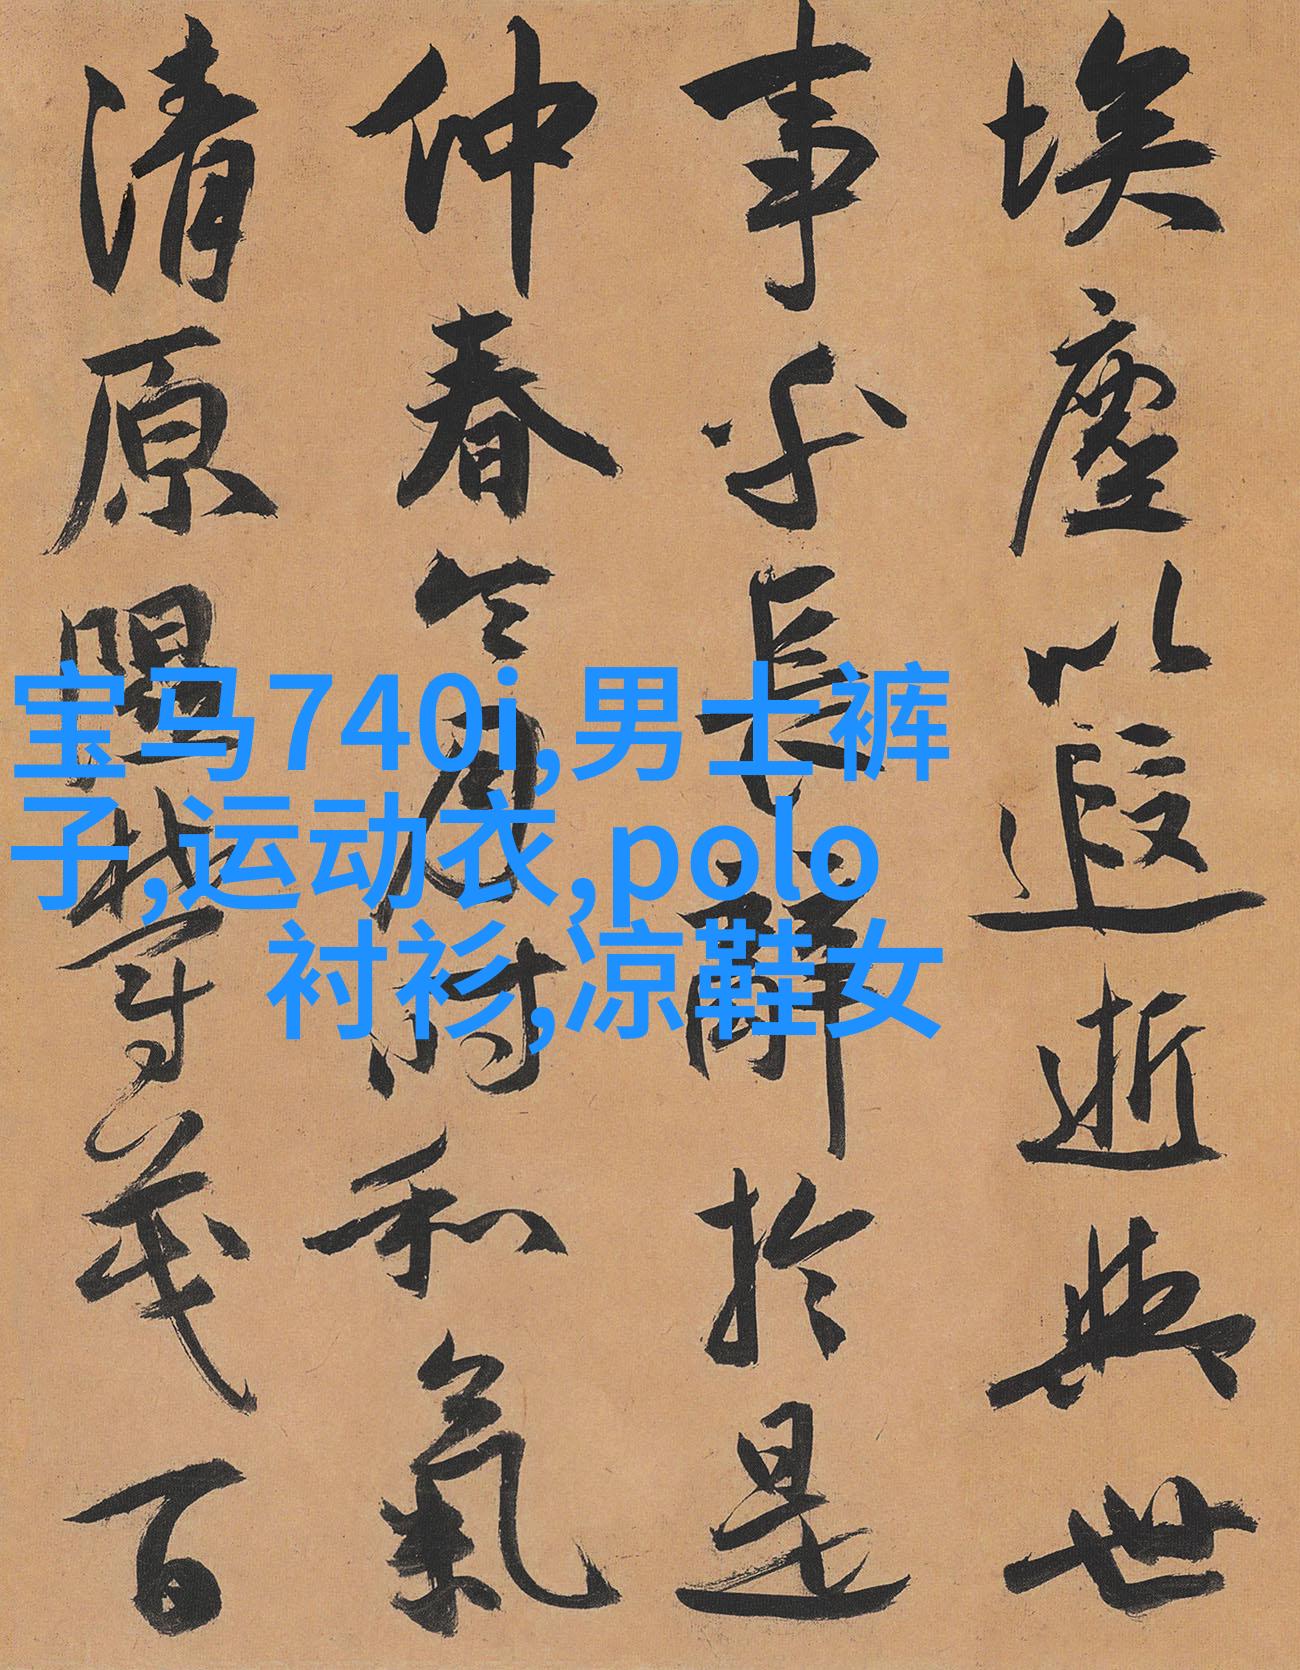 埃塵以遐逝與世
事乎長辭於是
仲春令月時和氣
清原隰鬱茂百
宝马740i,男士裤
子,运动衣,polo
衬衫,凉鞋女